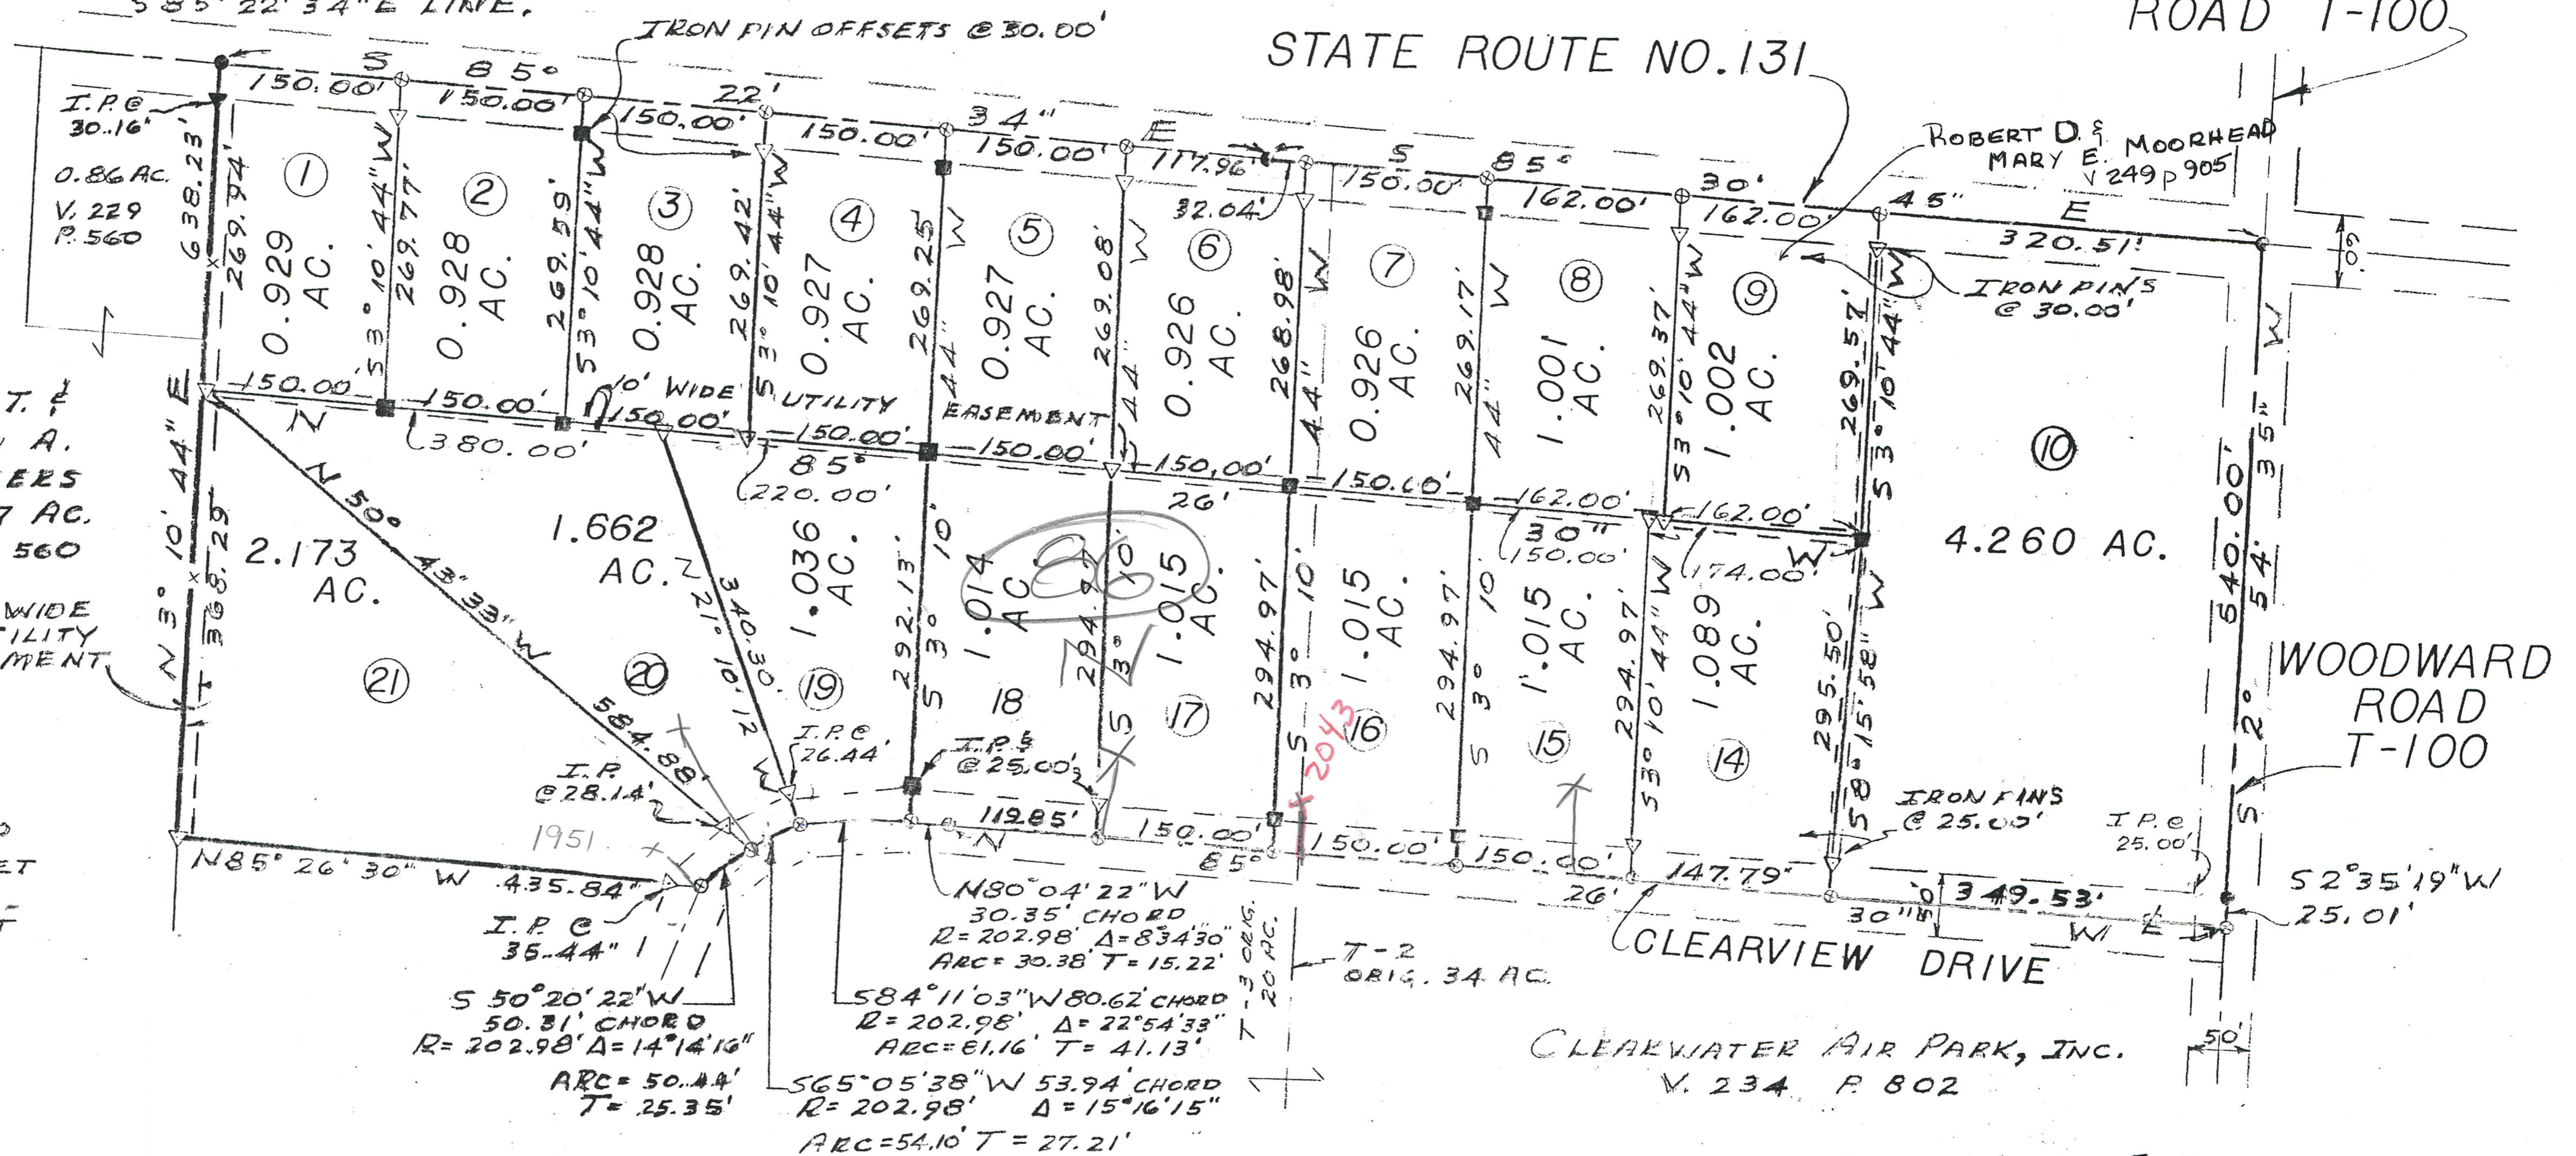 S 85° 22' 34" E LINE.
IRON PIN OFFSETS @ 30.00'
STATE ROUTE NO. 131
ROAD T-100
I.P. @
30.16'
0.86 AC.
V. 229
P. 560
638.23'
269.94'
S 85° 22' 34" E
150.00'
150.00'
150.00'
150.00'
150.00'
117.96'
32.04'
S 85° 30' 45" E
150.00'
162.00'
162.00'
320.51'
ROBERT D. &
MARY E. MOORHEAD
V 249 p 905
IRON PINS
@ 30.00'
60'
1
0.929
AC.
S 3° 10' 44" W
269.77'
2
0.928
AC.
269.59'
S 3° 10' 44" W
3
0.928
AC.
269.42'
S 3° 10' 44" W
4
0.927
AC.
269.25'
44" W
5
0.927
AC.
269.08'
44" W
6
0.926
AC.
268.98'
44" W
7
0.926
AC.
269.17'
44" W
8
1.001
AC.
269.37'
S 3° 10' 44" W
9
1.002
AC.
269.57'
S 3° 10' 44" W
10
4.260 AC.
540.00'
S 2° 54' 35" W
WOODWARD
ROAD
T-100
150.00'
150.00'
150.00'
150.00'
150.00'
150.00'
150.00'
162.00'
162.00'
10' WIDE UTILITY EASEMENT
N 85° 26' 30" W
380.00'
220.00'
150.00'
174.00'
T. &
A.
ERS
7 AC.
560
WIDE
ILITY
MENT
N 3° 10' 44" E
368.29
2.173
AC.
21
N 50° 43' 33" W
584.88'
1.662
AC.
20
N 21° 10' 12" W
340.30'
1.036
AC.
19
292.13'
S 3° 10'
1.014
AC.
18
294.97
S 3° 10'
1.015
AC.
17
294.97'
S 3° 10'
1.015
AC.
16
294.97'
S 3° 10'
1.015
AC.
15
294.97'
S 3° 10' 44" W
1.089
AC.
14
295.50'
S 8° 15' 58" W
2043
1951
I.P. @
26.44'
I.P. @
28.14'
I.P. @
35.44"
I.P. §
@ 25.00'
N85° 26' 30" W 435.84'
119.85'
150.00'
150.00'
150.00'
147.79"
349.53'
N 85° 26' 30" W
50'
IRON PINS
@ 25.00'
I.P. @
25.00'
S 2° 35' 19" W
25.01'
CLEARVIEW DRIVE
N80° 04' 22" W
30.35' CHORD
R = 202.98' Δ = 8°34'30"
ARC = 30.38' T = 15.22'
S84° 11' 03" W 80.62' CHORD
R = 202.98' Δ = 22°54'33"
ARC = 81.16' T = 41.13'
S 50° 20' 22" W
50.31' CHORD
R = 202.98' Δ = 14°14'16"
ARC = 50.44'
T = 25.35'
S65° 05' 38" W 53.94' CHORD
R = 202.98' Δ = 15°16'15"
ARC = 54.10' T = 27.21'
T-3 ORIG.
20 AC.
T-2
ORIG. 34 AC.
CLEARWATER AIR PARK, INC.
V. 234 P. 802
50'